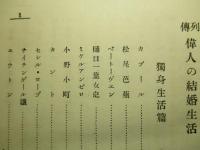 列傳
偉人の結婚生活
獨身生活篇
カブール
松尾芭蕉
ベートーヴエン
樋口一葉女史
ミケルアンゼロ
小野小町
カント
セシル・ローズ
ナイチンゲール孃
ニウトン